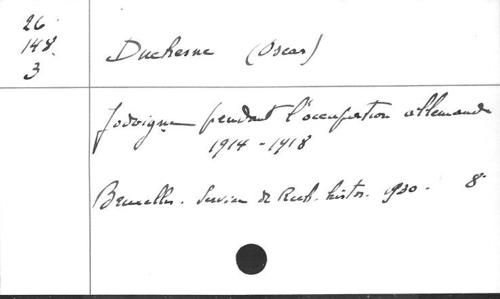 26
148.
3
Duchesne (Oscar)
Jodoigne pendant l'occupation allemande
1914 - 1918
Bruxelles. Service de Rech. histor. 920. 8°